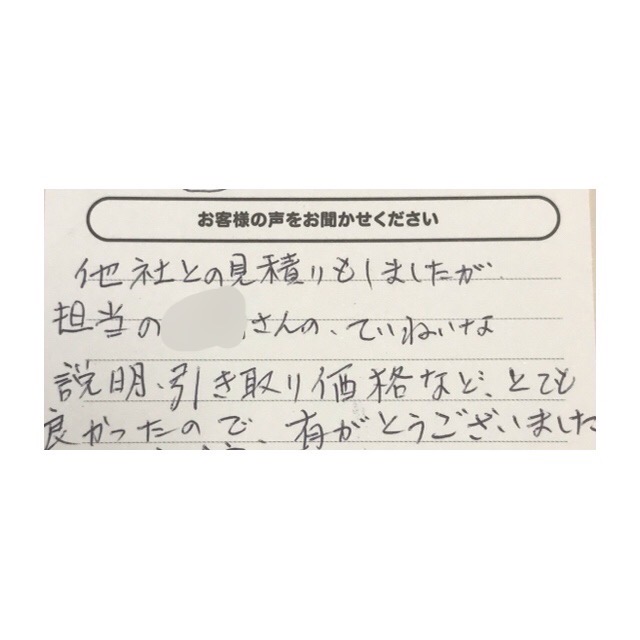 お客様の声をお聞かせください
他社との見積りもしましたが
担当の さんの、ていねいな
説明、引き取り価格など、とても
良かったので、有がとうございました